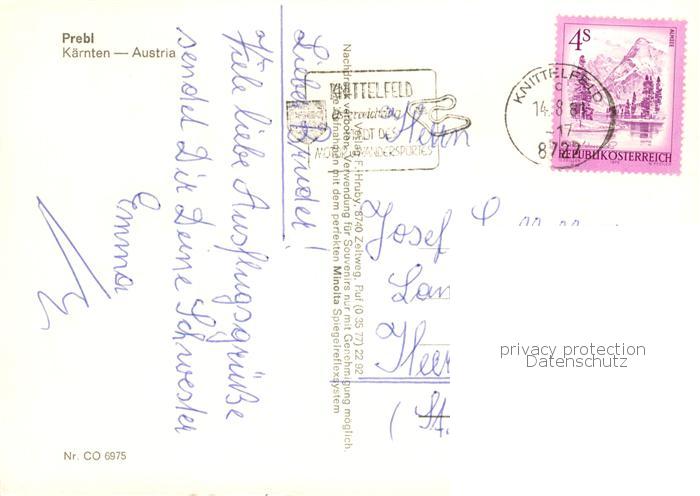 Prebl
Kärnten — Austria
Lieber Bruder!
Viele liebe Ausflugsgrüße
sendet Dir Deine Schwester
Emma
Nachdruck verboten. Verwendung für Souvenirs nur mit Genehmigung möglich.
Verlag F. Hruby, 8740 Zeltweg, Ruf (0 35 77) 22 92
mit dem perfekten Minolta Spiegelreflexsystem
KNITTELFELD
STADT DES
WANDERSPORTES
KNITTELFELD
14.8.81
-17
8722
4S
ALMSEE
REPUBLIK ÖSTERREICH
Herrn
Josef
privacy protection
Datenschutz
Nr. CO 6975